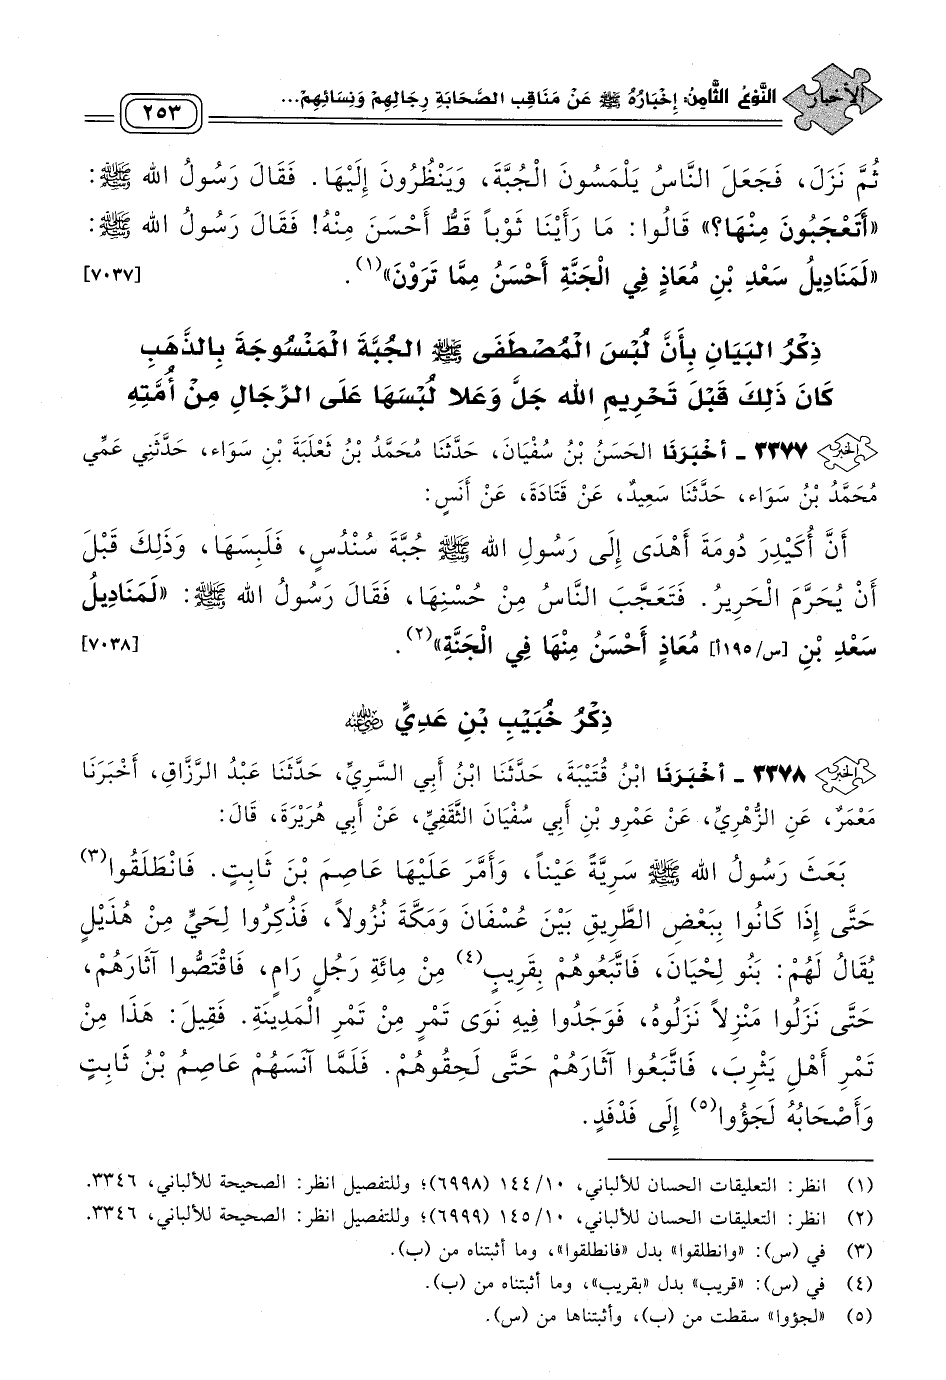 الأخبار
النَّوْعُ الثَّامِنُ: إِخْبَارُهُ ﷺ عَنْ مَنَاقِبِ الصَّحَابَةِ رِجَالِهِمْ وَنِسَائِهِمْ...
٢٥٣
ثُمَّ نَزَلَ، فَجَعَلَ النَّاسُ يَلْمَسُونَ الْجُبَّةَ، وَيَنْظُرُونَ إِلَيْهَا. فَقَالَ رَسُولُ الله ﷺ:
«أَتَعْجَبُونَ مِنْهَا؟» قَالُوا: مَا رَأَيْنَا ثَوْباً قَطُّ أَحْسَنَ مِنْهُ! فَقَالَ رَسُولُ الله ﷺ:
«لَمَنَادِيلُ سَعْدِ بْنِ مُعَاذٍ فِي الْجَنَّةِ أَحْسَنُ مِمَّا تَرَوْنَ»(١). [٧٠٣٧]
ذِكْرُ البَيَانِ بِأَنَّ لُبْسَ الْمُصْطَفَى ﷺ الجُبَّةَ الْمَنْسُوجَةَ بِالذَّهَبِ
كَانَ ذَلِكَ قَبْلَ تَحْرِيمِ الله جَلَّ وَعَلا لُبْسَهَا عَلَى الرِّجَالِ مِنْ أُمَّتِهِ
الخبر ٣٣٧٧ - أخْبَرَنَا الحَسَنُ بْنُ سُفْيَانَ، حَدَّثَنَا مُحَمَّدُ بْنُ ثَعْلَبَةَ بْنِ سَوَاء، حَدَّثَنِي عَمِّي
مُحَمَّدُ بْنُ سَوَاء، حَدَّثَنَا سَعِيدٌ، عَنْ قَتَادَةَ، عَنْ أَنَسٍ:
أَنَّ أُكَيْدِرَ دُومَةَ أَهْدَى إِلَى رَسُولِ الله ﷺ جُبَّةَ سُنْدُسٍ، فَلَبِسَهَا، وَذَلِكَ قَبْلَ
أَنْ يُحَرَّمَ الْحَرِيرُ. فَتَعَجَّبَ النَّاسُ مِنْ حُسْنِهَا، فَقَالَ رَسُولُ الله ﷺ: «لَمَنَادِيلُ
سَعْدِ بْنِ [س/١٩٥أ] مُعَاذٍ أَحْسَنُ مِنْهَا فِي الْجَنَّةِ»(٢). [٧٠٣٨]
ذِكْرُ خُبَيْبِ بْنِ عَدِيٍّ رضي الله عنه
الخبر ٣٣٧٨ - أخْبَرَنَا ابْنُ قُتَيْبَةَ، حَدَّثَنَا ابْنُ أَبِي السَّرِيِّ، حَدَّثَنَا عَبْدُ الرَّزَّاقِ، أَخْبَرَنَا
مَعْمَرٌ، عَنِ الزُّهْرِيِّ، عَنْ عَمْرِو بْنِ أَبِي سُفْيَانَ الثَّقَفِيِّ، عَنْ أَبِي هُرَيْرَةَ، قَالَ:
بَعَثَ رَسُولُ الله ﷺ سَرِيَّةً عَيْناً، وَأَمَّرَ عَلَيْهَا عَاصِمَ بْنَ ثَابِتٍ. فَانْطَلَقُوا(٣)
حَتَّى إِذَا كَانُوا بِبَعْضِ الطَّرِيقِ بَيْنَ عُسْفَانَ وَمَكَّةَ نُزُولاً، فَذُكِرُوا لِحَيٍّ مِنْ هُذَيْلٍ
يُقَالُ لَهُمْ: بَنُو لِحْيَانَ، فَاتَّبَعُوهُمْ بِقَرِيبٍ(٤) مِنْ مِائَةِ رَجُلٍ رَامٍ، فَاقْتَصُّوا آثَارَهُمْ،
حَتَّى نَزَلُوا مَنْزِلاً نَزَلُوهُ، فَوَجَدُوا فِيهِ نَوَى تَمْرٍ مِنْ تَمْرِ الْمَدِينَةِ. فَقِيلَ: هَذَا مِنْ
تَمْرِ أَهْلِ يَثْرِبَ، فَاتَّبَعُوا آثَارَهُمْ حَتَّى لَحِقُوهُمْ. فَلَمَّا آنَسَهُمْ عَاصِمُ بْنُ ثَابِتٍ
وَأَصْحَابُهُ لَجَؤُوا(٥) إِلَى فَدْفَدٍ.
(١) انظر: التعليقات الحسان للألباني، ١٤٤/١٠ (٦٩٩٨)؛ وللتفصيل انظر: الصحيحة للألباني، ٣٣٤٦.
(٢) انظر: التعليقات الحسان للألباني، ١٤٥/١٠ (٦٩٩٩)؛ وللتفصيل انظر: الصحيحة للألباني، ٣٣٤٦.
(٣) في (س): «وانطلقوا» بدل «فانطلقوا»، وما أثبتناه من (ب).
(٤) في (س): «قريب» بدل «بقريب»، وما أثبتناه من (ب).
(٥) «لجؤوا» سقطت من (ب)، وأثبتناها من (س).